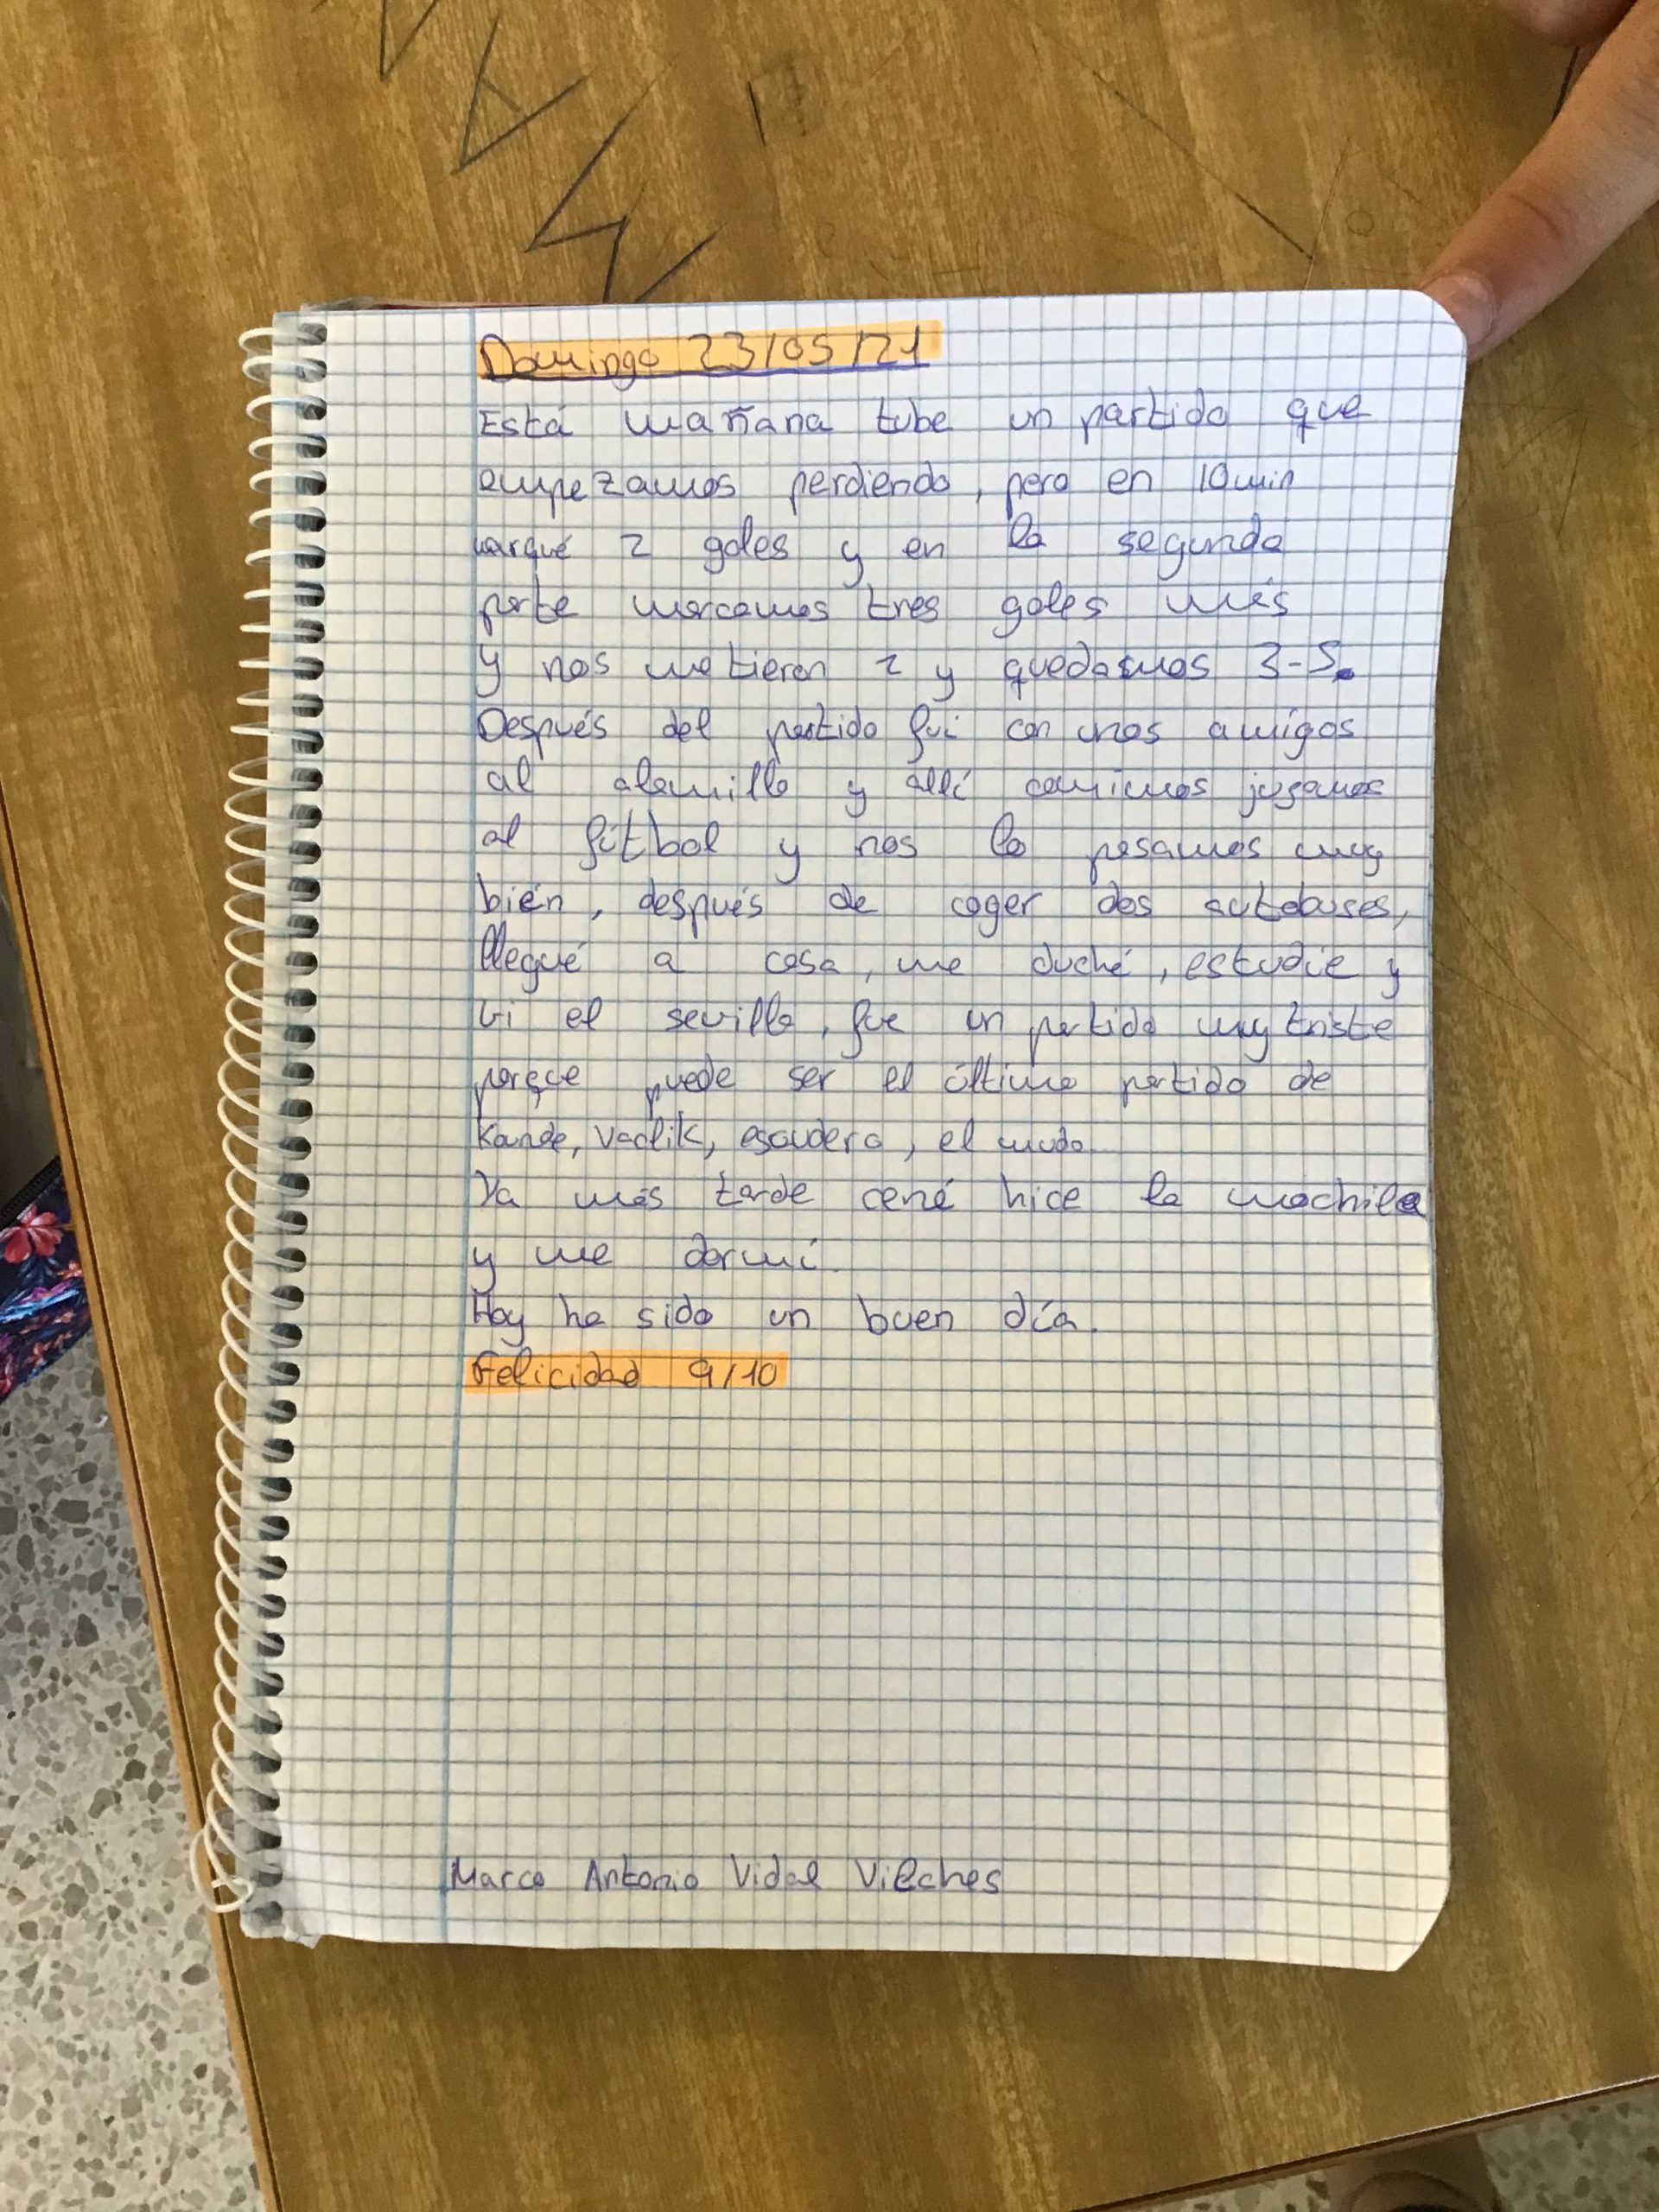 Domingo 23/05/21
Está mañana tube un partido que
empezamos perdiendo, pero en 10 min
marqué 2 goles y en la segunda
parte marcamos tres goles más
y nos metieron 2 y quedamos 3-5.
Después del partido fui con unos amigos
al alamillo y allí comimos jugamos
al fútbol y nos lo pasamos muy
bién, después de coger dos autobuses,
llegué a casa, me duché, estudié y
vi el sevilla, fue un partido muy triste
porque puede ser el último partido de
Kounde, Vaclik, escudero, el mudo.
Ya más tarde cené hice la mochila
y me dormí.
Hoy ha sido un buen día.
Felicidad 9/10
Marco Antonio Vidal Vilches